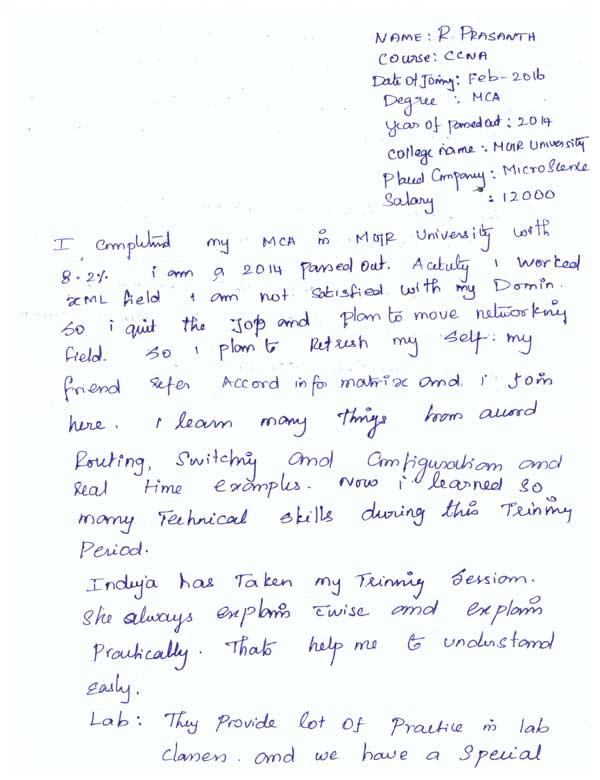 NAME: R. PRASANTH
Course: CCNA
Date Of Joinig: Feb-2016
Degree : MCA
Year of passed out: 2014
College name: MGR University
Placed Company: MicroScence
Salary : 12000
I Completed my MCA in MGR University with
8.2%. i am a 2014 passed out. Actuly i worked
XML field i am not satisfied with my Domin.
So i quit the Jop and plan to move networking
field. So i plan to Refresh my self. my
friend refer Accord info matrix and i join
here. i learn many things from accord
Routing, Switching and Configuration and
Real time examples. Now i learned so
many Technical skills during this Trining
Period.
Induja has Taken my Trining Session.
She always explain twise and explain
Practically. Thats help me to understand
easly.
Lab: They Provide lot Of Practice in lab
classes. and we have a Special